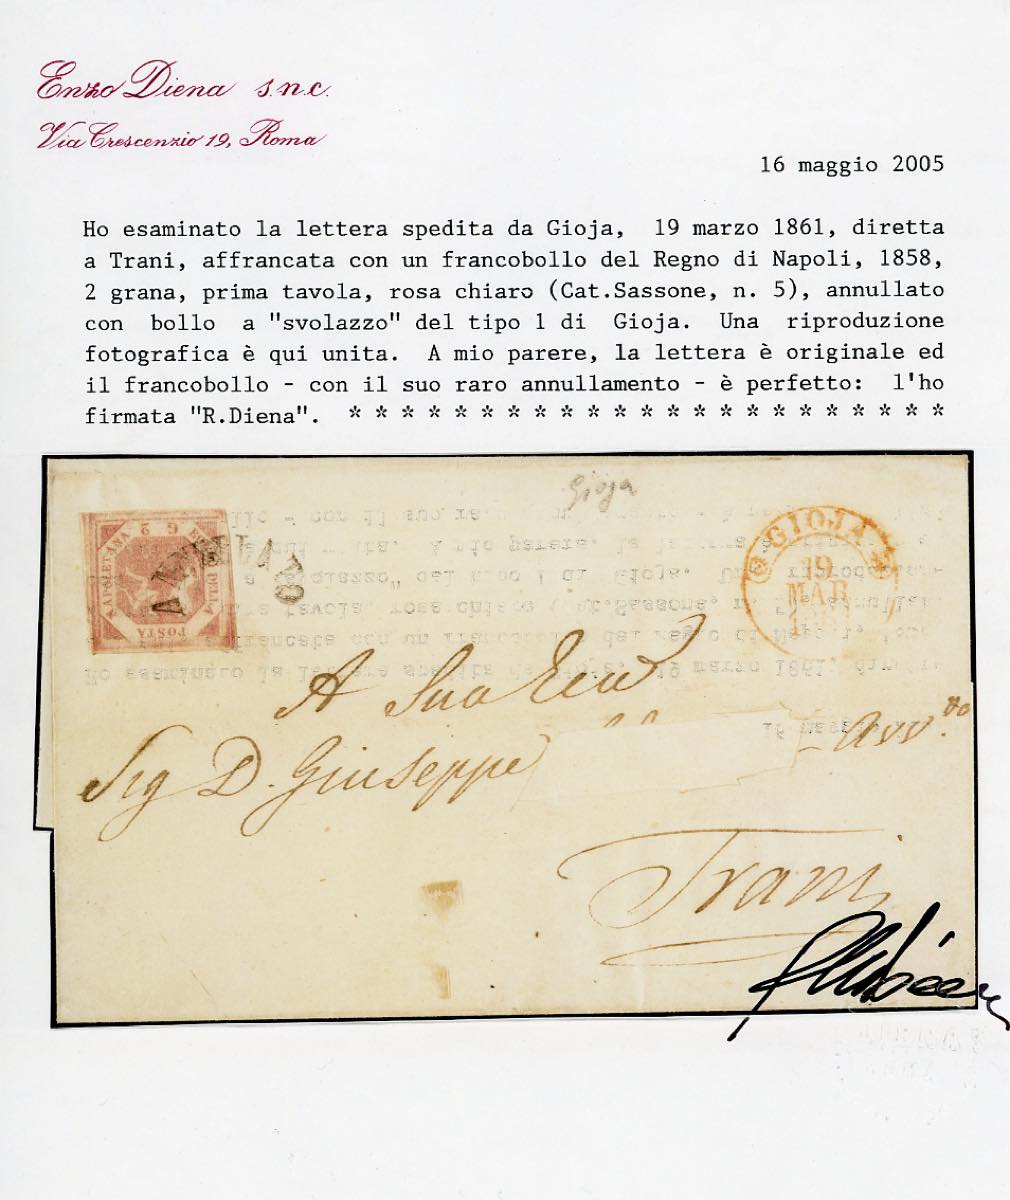 Enzo Diena s.n.c.
Via Crescenzio 19, Roma
16 maggio 2005
Ho esaminato la lettera spedita da Gioja, 19 marzo 1861, diretta
a Trani, affrancata con un francobollo del Regno di Napoli, 1858,
2 grana, prima tavola, rosa chiaro (Cat.Sassone, n. 5), annullato
con bollo a "svolazzo" del tipo 1 di Gioja. Una riproduzione
fotografica è qui unita. A mio parere, la lettera è originale ed
il francobollo - con il suo raro annullamento - è perfetto: l'ho
firmata "R.Diena". * * * * * * * * * * * * * * * * * * * * * * *
Gioja
G 2
NAPOLETANA
POSTA
DELLA
ANNULLATO
GIOJA
19
MAR
A Sua Ecc
Sig D. Giuseppe
Avv.to
Trani